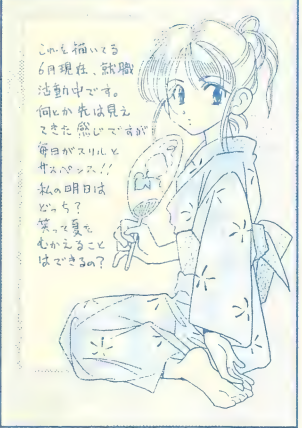 これを描いてる
6月現在、就職
活動中です。
何とか先は見え
てきた感じですが
毎日がスリルと
サスペンス!!
私の明日は
どっち?
笑って夏を
むかえること
はできるの?